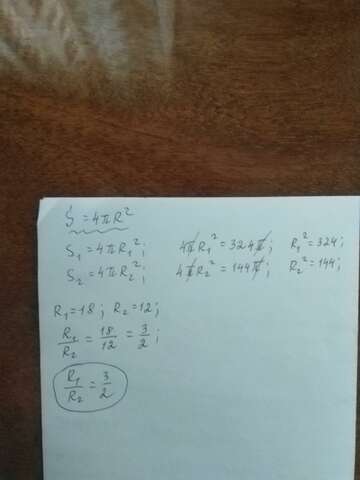 S = 4πR²
S₁ = 4πR₁²; 4πR₁² = 324π; R₁² = 324;
S₂ = 4πR₂²; 4πR₂² = 144π; R₂² = 144;
R₁ = 18; R₂ = 12;
R₁/R₂ = 18/12 = 3/2;
R₁/R₂ = 3/2